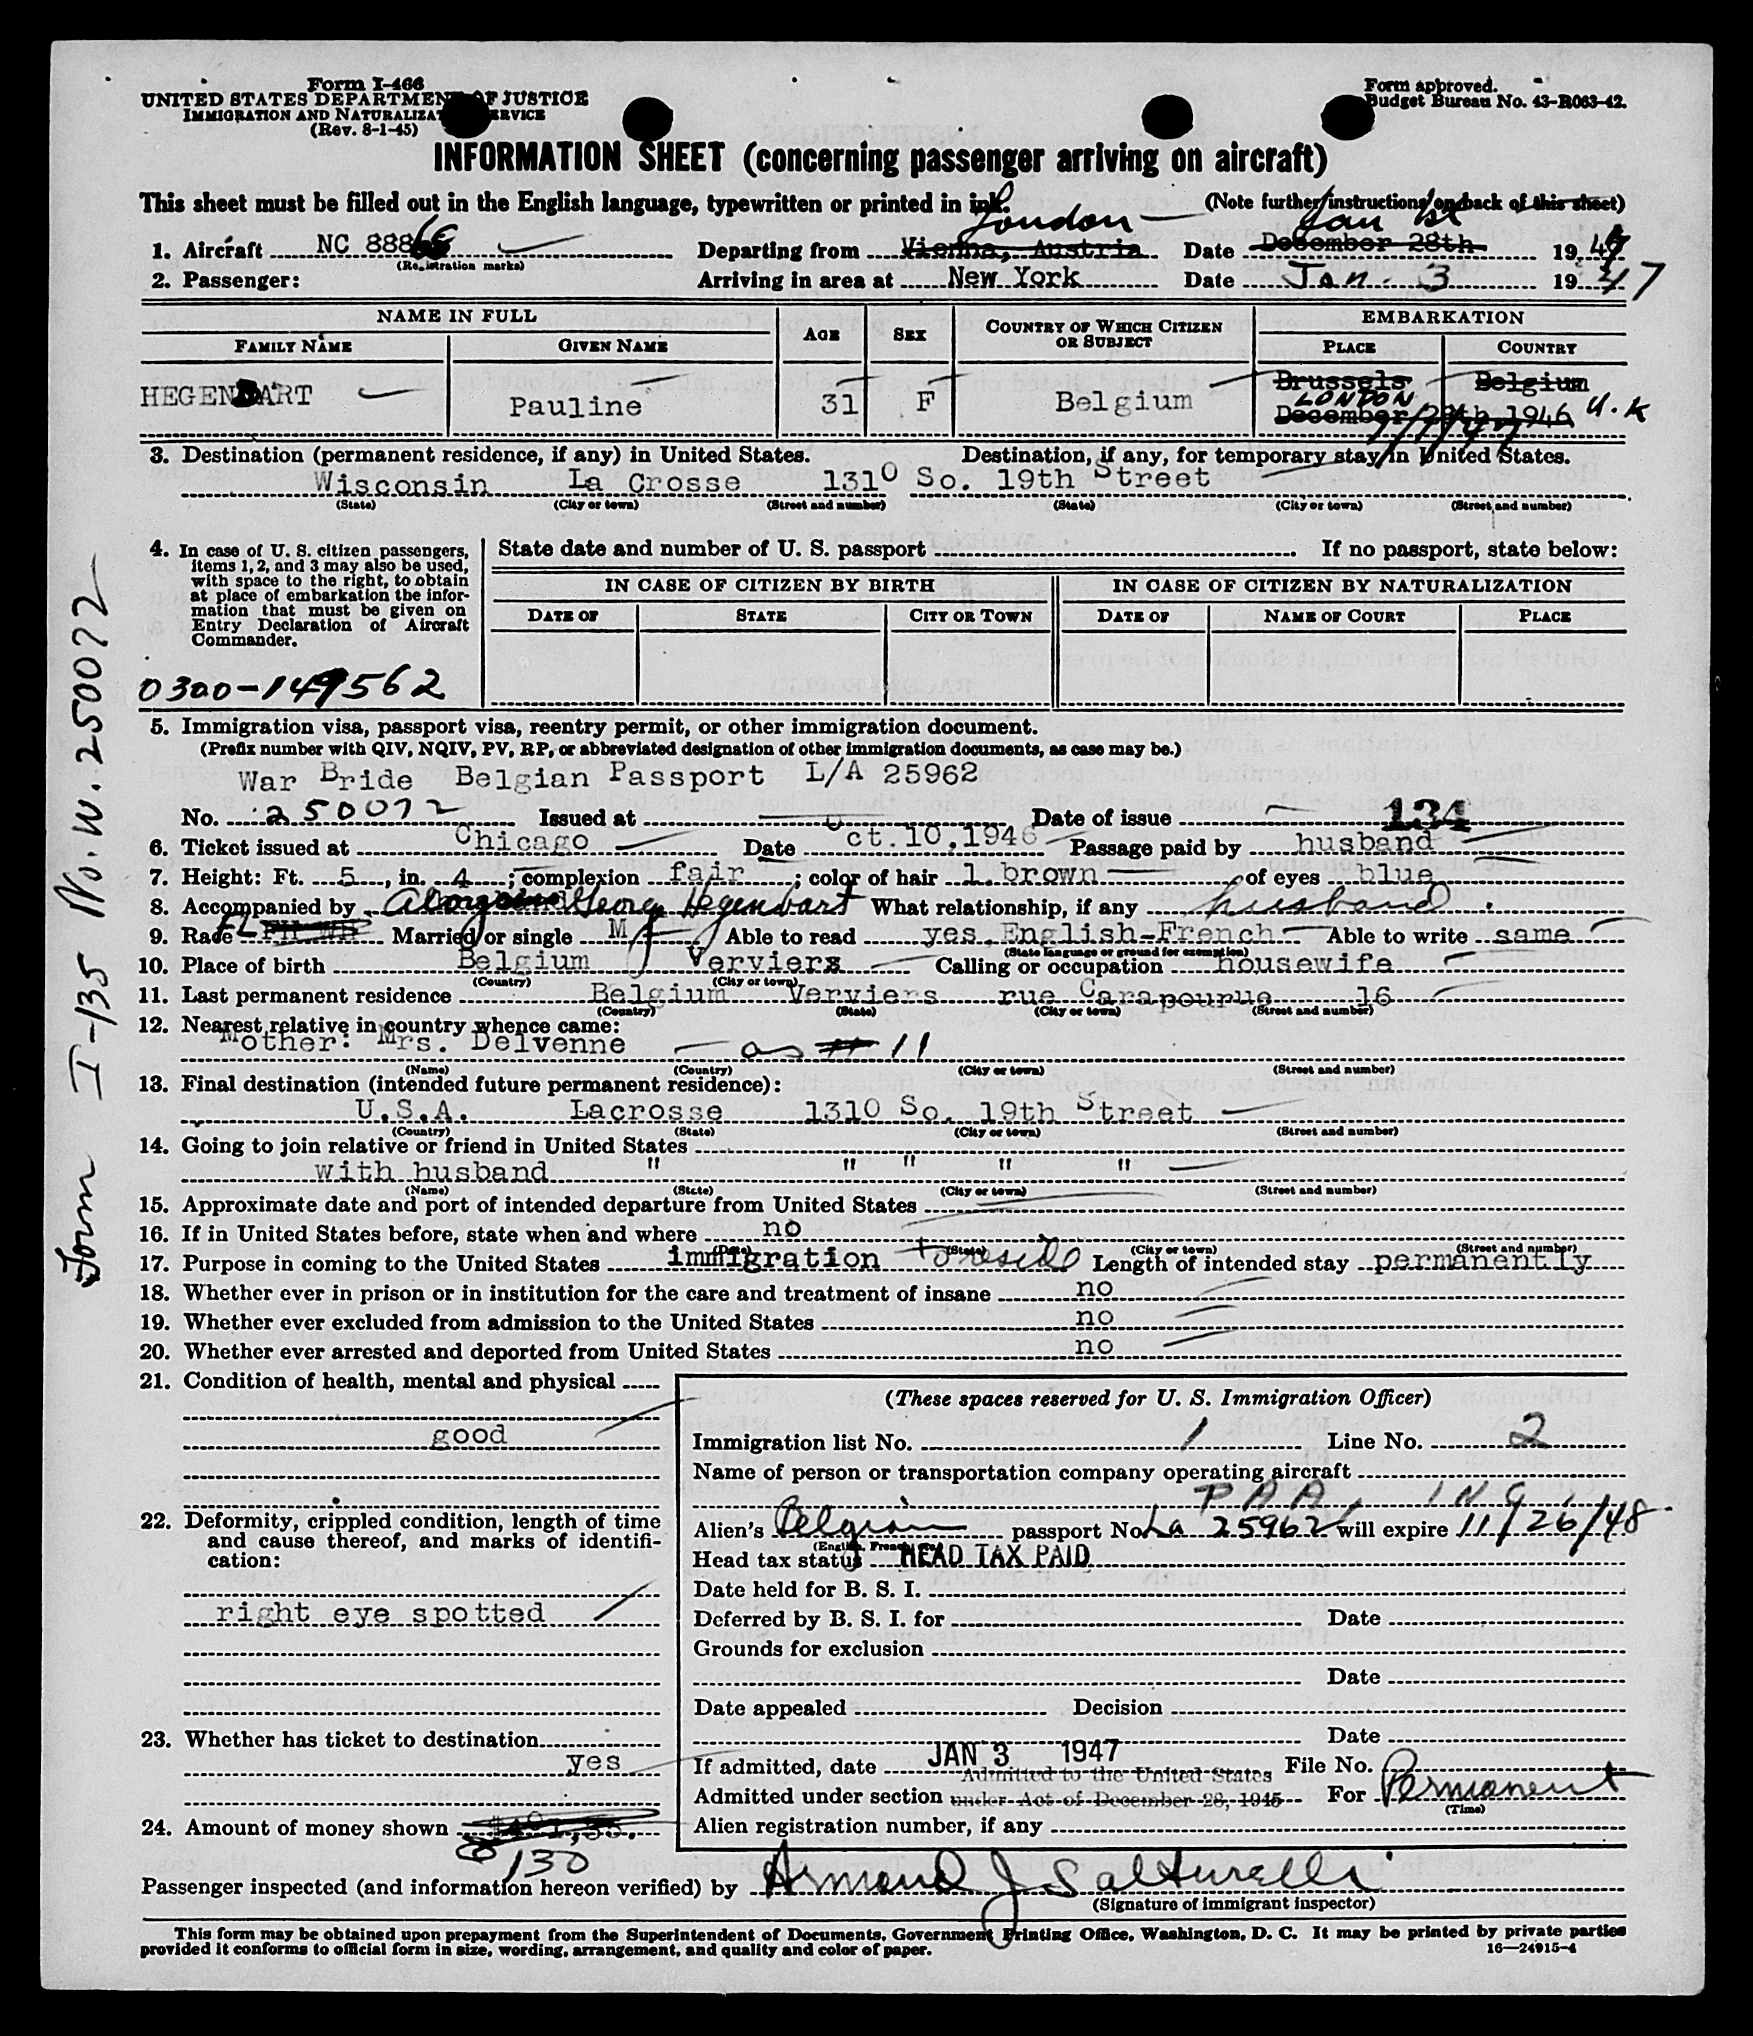 Form I-466
UNITED STATES DEPARTMENT OF JUSTICE
IMMIGRATION AND NATURALIZATION SERVICE
(Rev. 8-1-45)
Form approved.
Budget Bureau No. 43-R063-42.
INFORMATION SHEET (concerning passenger arriving on aircraft)
This sheet must be filled out in the English language, typewritten or printed in ink.
(Note further instructions on back of this sheet)
London Jan 1st
1. Aircraft NC 888 Departing from Vienna, Austria Date December 28th 19
(Registration marks)
2. Passenger: Arriving in area at New York Date Jan. 3 1947
NAME IN FULL AGE SEX COUNTRY OF WHICH CITIZEN OR SUBJECT EMBARKATION
FAMILY NAME GIVEN NAME PLACE COUNTRY
HEGENBART Pauline 31 F Belgium Brussels Belgium
LONDON U.K
December 29th 1946
1/1/47
3. Destination (permanent residence, if any) in United States. Destination, if any, for temporary stay in United States.
Wisconsin La Crosse 1310 So. 19th Street
(State) (City or town) (Street and number) (State) (City or town) (Street and number)
4. In case of U. S. citizen passengers, items 1, 2, and 3 may also be used, with space to the right, to obtain at place of embarkation the information that must be given on Entry Declaration of Aircraft Commander.
State date and number of U. S. passport If no passport, state below:
IN CASE OF CITIZEN BY BIRTH IN CASE OF CITIZEN BY NATURALIZATION
DATE OF STATE CITY OR TOWN DATE OF NAME OF COURT PLACE
0300-149562
5. Immigration visa, passport visa, reentry permit, or other immigration document.
(Prefix number with QIV, NQIV, PV, RP, or abbreviated designation of other immigration documents, as case may be.)
War Bride Belgian Passport L/A 25962
No. 250072 Issued at Date of issue 134
6. Ticket issued at Chicago Date Oct.10,1946 Passage paid by husband
7. Height: Ft. 5, in. 4; complexion fair; color of hair l. brown of eyes blue
8. Accompanied by George Hegenbart What relationship, if any husband
9. Race FL Married or single M Able to read yes, English-French Able to write same
(State language or ground for exemption)
10. Place of birth Belgium Verviers Calling or occupation housewife
(Country) (City or town)
11. Last permanent residence Belgium Verviers rue Carapourue 16
(Country) (State) (City or town) (Street and number)
12. Nearest relative in country whence came:
Mother: Mrs. Delvenne as # 11
(Name) (Country) (City or town) (Street and number)
13. Final destination (intended future permanent residence):
U.S.A. Lacrosse 1310 So. 19th Street
(Country) (State) (City or town) (Street and number)
14. Going to join relative or friend in United States
with husband " " " " "
(Name) (State) (City or town) (Street and number)
15. Approximate date and port of intended departure from United States
16. If in United States before, state when and where no
(Date) (State) (City or town) (Street and number)
17. Purpose in coming to the United States immigration to reside Length of intended stay permanently
18. Whether ever in prison or in institution for the care and treatment of insane no
19. Whether ever excluded from admission to the United States no
20. Whether ever arrested and deported from United States no
21. Condition of health, mental and physical
good
22. Deformity, crippled condition, length of time and cause thereof, and marks of identification:
right eye spotted
23. Whether has ticket to destination
yes
24. Amount of money shown
130
(These spaces reserved for U. S. Immigration Officer)
Immigration list No. 1 Line No. 2
Name of person or transportation company operating aircraft
PAA, INC.
Alien's Belgian passport No. La 25962 will expire 11/26/48
Head tax status HEAD TAX PAID
Date held for B. S. I.
Deferred by B. S. I. for Date
Grounds for exclusion
Date
Date appealed Decision
Date
If admitted, date JAN 3 1947 File No.
Admitted to the United States
Admitted under section under Act of December 28, 1945 For Permanent
(Time)
Alien registration number, if any
Passenger inspected (and information hereon verified) by Armand J Salturelli
(Signature of immigrant inspector)
This form may be obtained upon prepayment from the Superintendent of Documents, Government Printing Office, Washington, D. C. It may be printed by private parties
provided it conforms to official form in size, wording, arrangement, and quality and color of paper.
16—24915-4
Form I-135 No. W. 250072